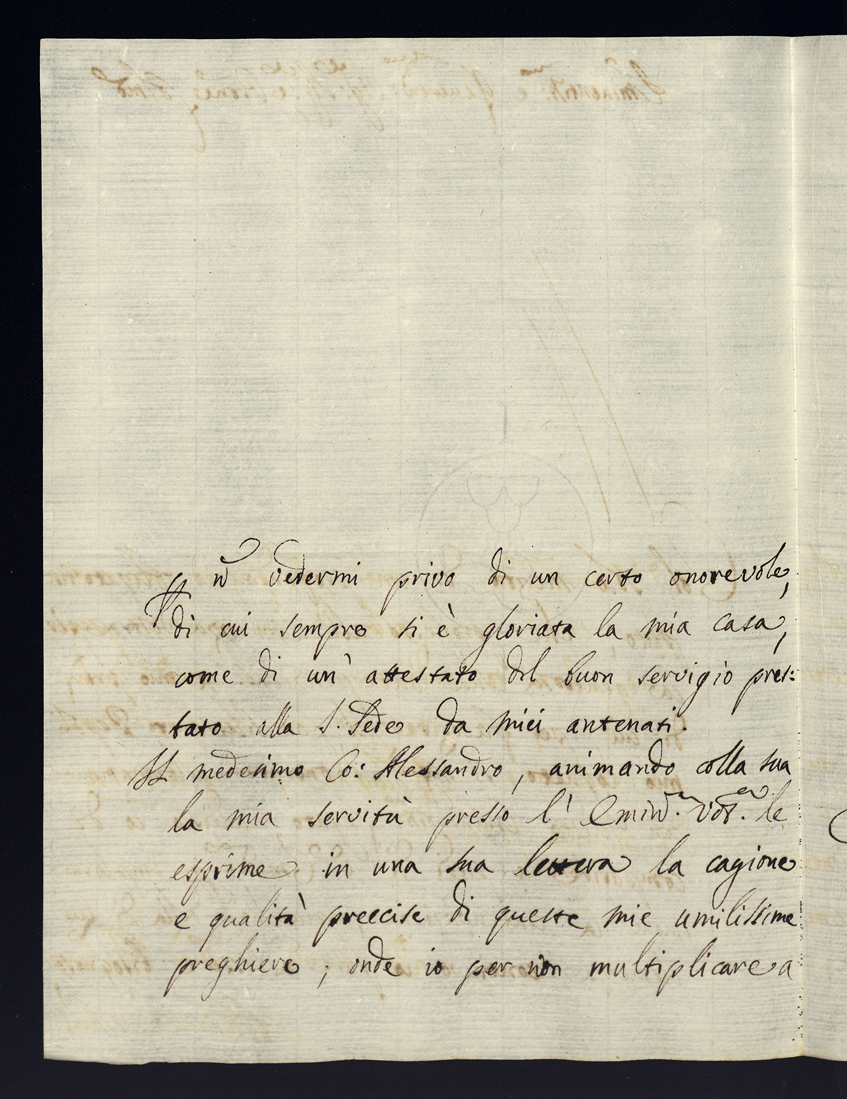 p n̄ vedermi privo di un certo onorevole,
di cui sempre si è gloriata la mia casa,
come di un' attestato del buon servigio pres:
tato alla S. Sede da miei antenati.
Il medesimo Co: Alessandro, animando colla sua
la mia servitù presso l' Emin. Vos. le
esprime in una sua lettera la cagione
e qualità precise di queste mie umilissime
preghiere ; onde io per non multiplicare a